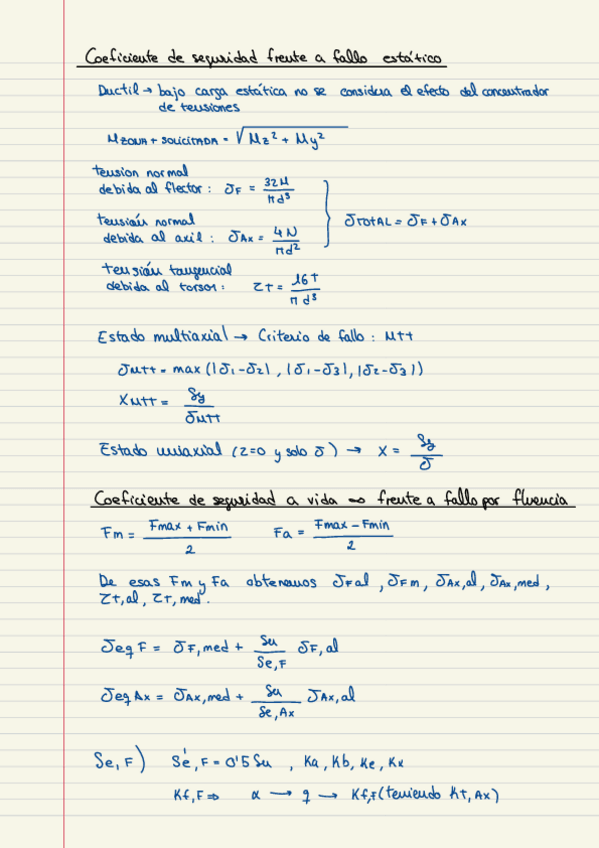 Coeficiente de seguridad frente a fallo estático
Ductil → bajo carga estática no se considera el efecto del concentrador
de tensiones
MZONA + SOLICITADA = √Mz² + My²
tension normal
debida al flector : σF = 32M / πd³
tensión normal
debida al axil : σAx = 4N / πd²
σTOTAL = σF + σAx
tensión tangencial
debida al torsor : τT = 16T / πd³
Estado multiaxial → Criterio de fallo : MTT
σMTT = max (|σ1-σ2| , |σ1-σ3|, |σ2-σ3|)
XMTT = Sy / σMTT
Estado uniaxial (τ=0 y solo σ) → X = Sy / σ
Coeficiente de seguridad a vida ∞ frente a fallo por fluencia
Fm = Fmax + Fmin / 2 Fa = Fmax - Fmin / 2
De esas Fm y Fa obtenemos σFal , σFm , σAx,al , σAx,med ,
τT,al , τT,med .
σeq F = σF,med + Su / Se,F σF,al
σeq Ax = σAx,med + Su / Se,Ax σAx,al
Se,F) Sé,F = 0'5 Su , Ka, Kb, Ke, Kx
Kf,F ⇒ α → q → Kf,F (teniendo Kt,Ax)